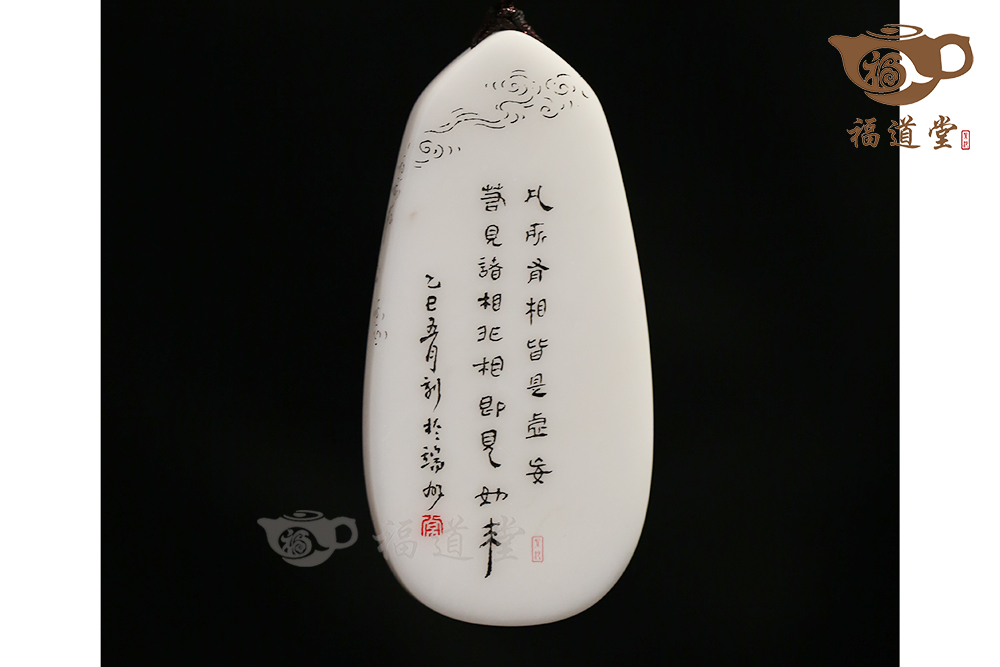 凡所有相皆是虚妄
若見諸相非相即見如来
乙巳五月刻於端州
福道堂
福道堂